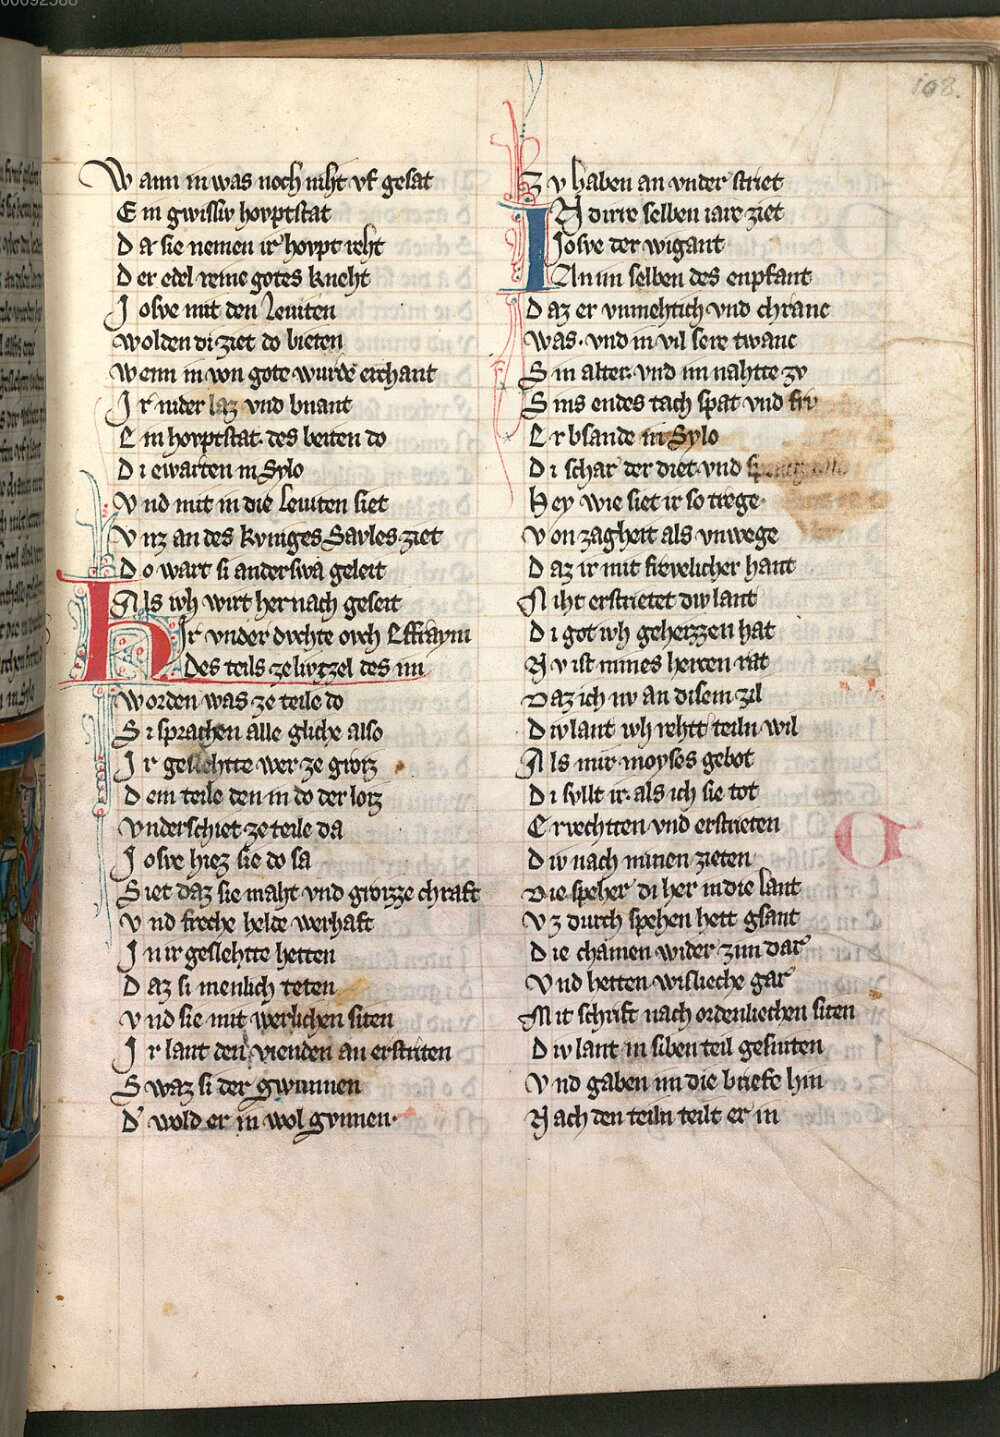 108.
Wann in was noch niht vf gesat
Ein gwissiv hovptstat
Da sie nemen ir hovpt reht
Der edel reine gotes kneht
Josve mit den Leuiten
wolden di ziet do bieten
wenn in von gote wurde erchant
Ir nider laz vnd bnant
Ein hovptstat des beiten do
Di ewarten in Sylo
Vnd mit in die Leuiten siet
Vnz an des kvniges Savles ziet
Do wart si anderswa geleit
Als iwh wirt her nach geseit
Hir vnder dvchte ovch Effraym
Des teils ze livtzel des im
worden was ze teile do
Si sprachen alle gliche also
Ir geslehtte wer ze groz
Dem teile den in do der loz
Vnderschiet ze teile da
Josve hiez sie do sa
Siet daz sie maht vnd grozze chraft
Vnd freche helde werhaft
In ir geslehtte hetten
Daz si menlich teten
Vnd sie mit werlichen siten
Ir lant den vienden an erstriten
Swaz si der gwunnen
D' wold er in wol gvnnen
Zv haben an vnder striet
IN dirre selben iare ziet
Josve der wigant
An im selben des enpfant
Daz er vnmehtich vnd chranc
was. vnd in vil sere twanc
Sin alter. vnd im nahtte zv
Sins endes tach spat vnd frv
Er bsande in Sylo
Di schar der diet vnd
Hey wie siet ir so trege
Von zagheit als vnwege
Daz ir mit frevelicher hant
Niht erstrietet div lant
Di got iwh geheizzen hat
Nv ist mines herren rat
Daz ich iv an disem zil
Div lant iwh rehtt teiln wil
Als mir moyses gebot
Di svllt ir als ich sie tot
Ervechtten vnd erstrieten
Div nach minen zieten
Die speher di her in die lant
Vz durch spehen hett gsant
Die chamen wider zim dar
Vnd hetten wisliche gar
Mit schrift nach ordenliechen siten
Div lant in siben teil gesniten
Vnd gaben im die briefe hin
Nach den teiln teilt er in